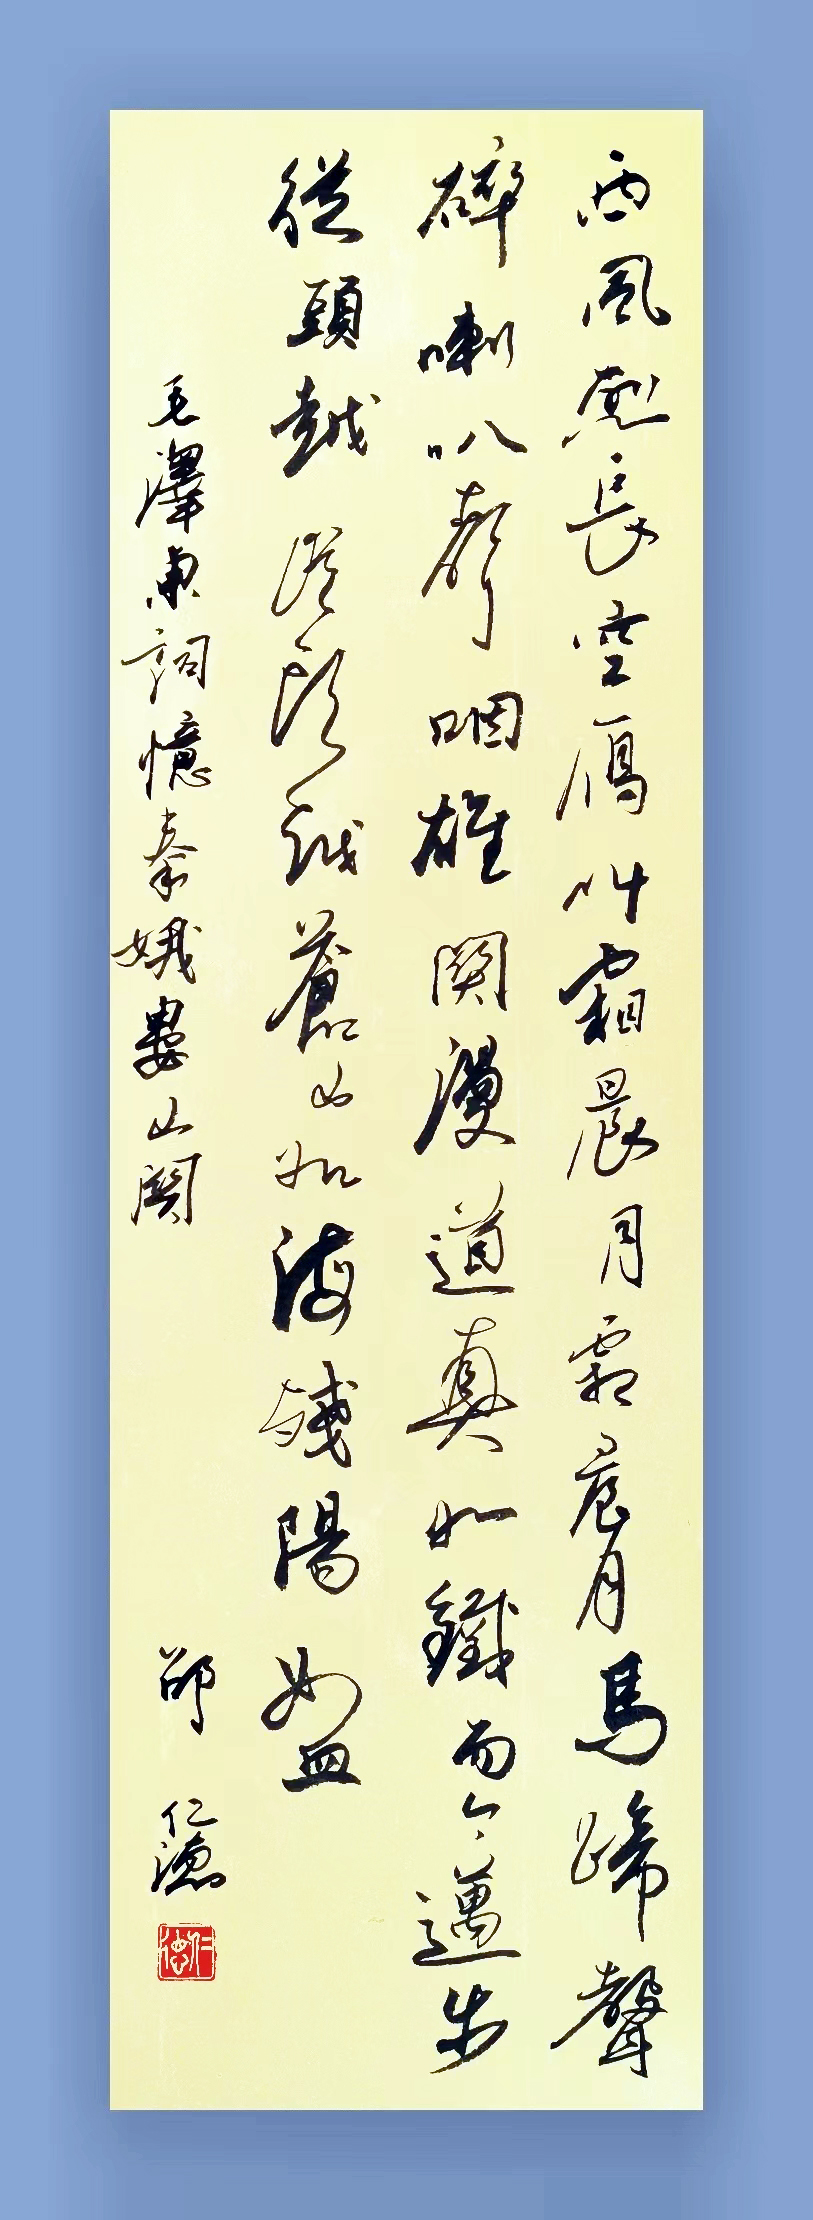 西風烈長空雁叫霜晨月霜晨月馬蹄聲
碎喇叭聲咽雄關漫道真如鐵而今邁步
從頭越從頭越蒼山如海殘陽如血
毛澤東詞憶秦娥婁山關
邵仁德
仁德